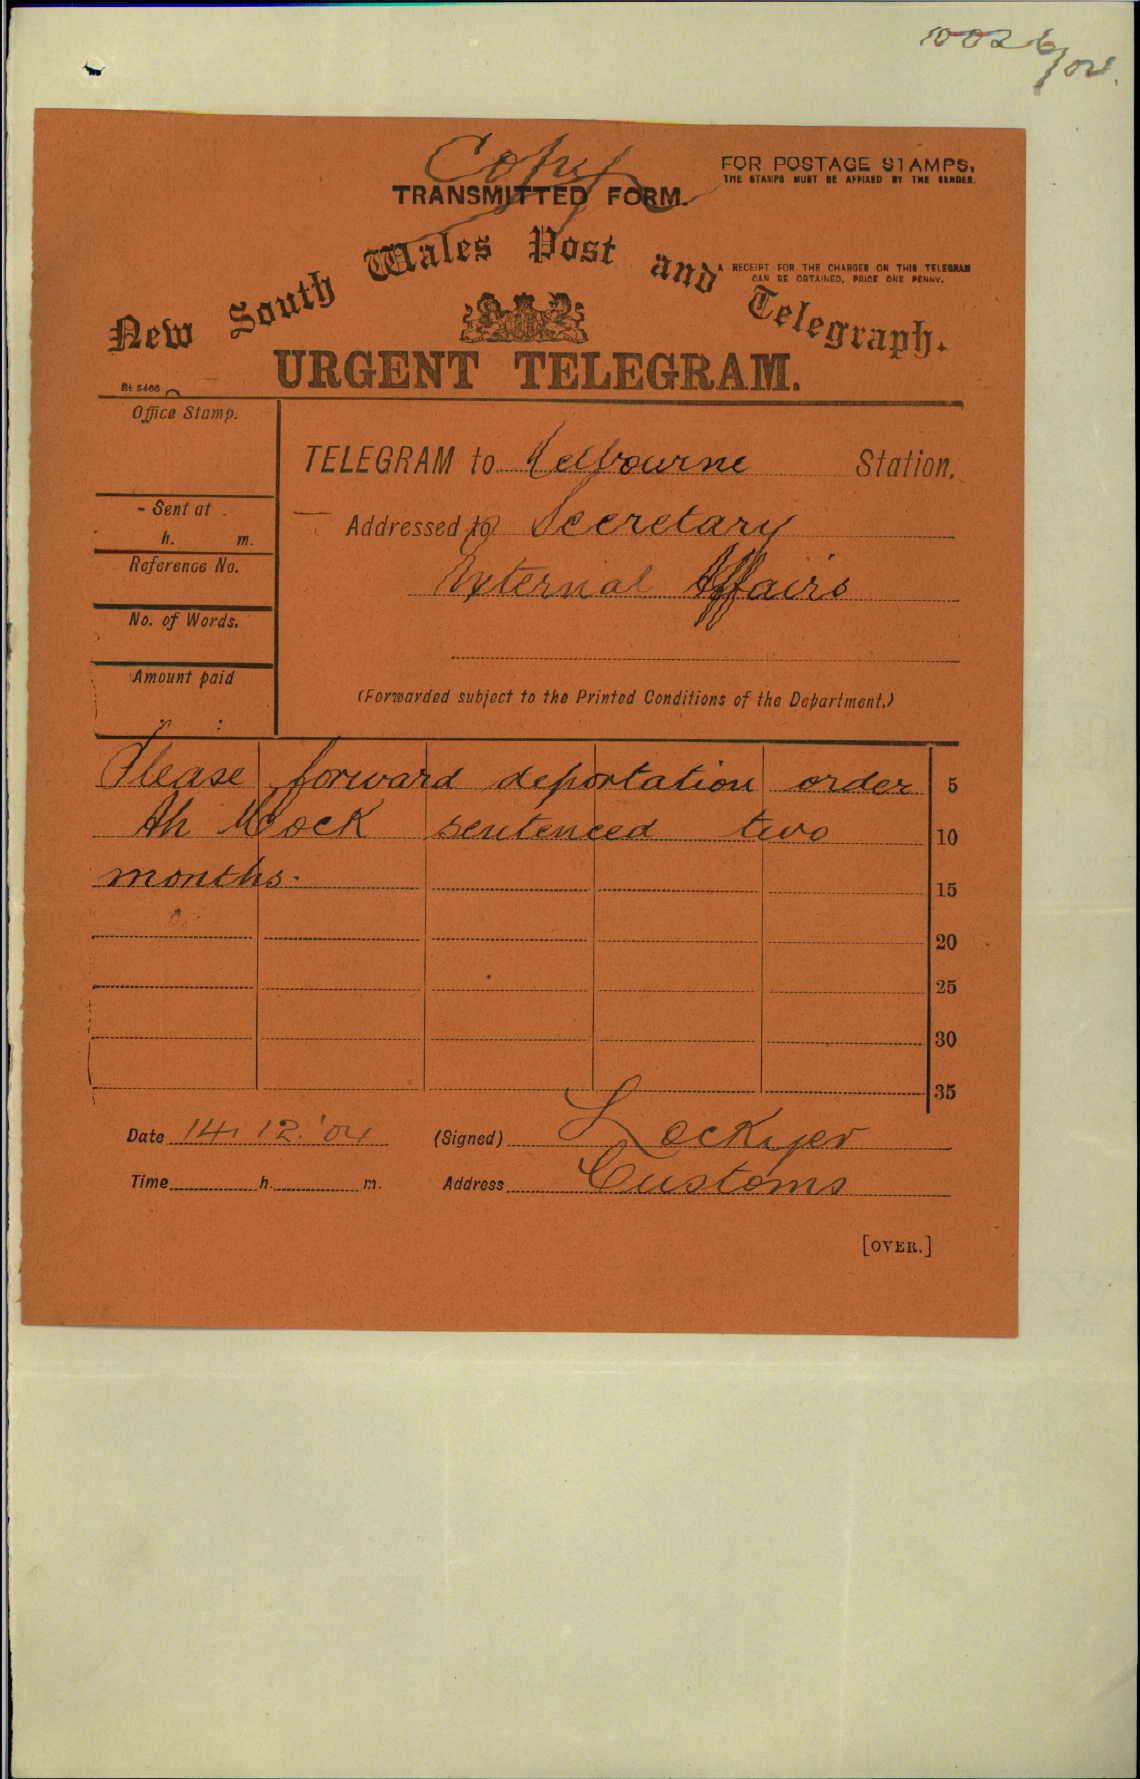 10026/04.
Copy
TRANSMITTED FORM.
FOR POSTAGE STAMPS.
THE STAMPS MUST BE AFFIXED BY THE SENDER.
New South Wales Post and Telegraph.
A RECEIPT FOR THE CHARGES ON THIS TELEGRAM
CAN BE OBTAINED, PRICE ONE PENNY.
URGENT TELEGRAM.
St 5466
Office Stamp.
TELEGRAM to Melbourne Station.
Sent at
h. m.
Addressed to Secretary
Reference No.
External Affairs
No. of Words.
Amount paid
(Forwarded subject to the Printed Conditions of the Department.)
Please forward deportation order 5
Ah Hock sentenced two 10
months. 15
20
25
30
35
Date 14.12.'04 (Signed) Lockyer
Time h. m. Address Customs
[OVER.]